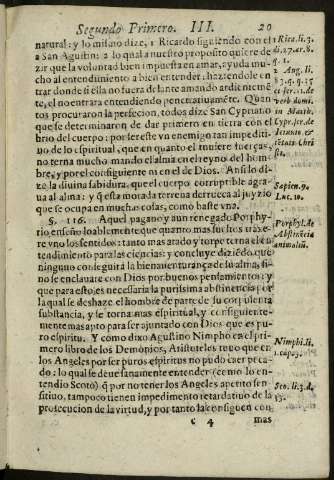 Segundo Primero. III. 20
natural: y lo mismo dize, 1 Ricardo siguiendo con el
2 San Agustin: a lo qual a nuestro proposito quiere de
zir que la voluntad bien impuesta en amar, ayuda mu-
cho al entendimiento a bien entender: haziendole en
trar donde si ella no fuera delante amando ardientemē
te, el no entrara entendiendo penetratiuamēte. Quan
tos procuraron la perfecion, todos dize San Cypriano
que se determinaron de dar primero en tierra con el
brio del cuerpo: por ser este vn enemigo tan impediti-
uo de lo espiritual, que en quanto el tuuiere fuerças,
no terna mucho mando el alma en el reyno del hom-
bre, y por el consiguiente ni en el de Dios. Ansi lo di-
ze la diuina sabidura, que el cuerpo corruptible agra-
ua al alma: y q̄ esta morada terrena derrueca al juyzio
que se ocupa en muchas cosas, como baste vna.
§. 116. Aquel pagano y aun renegado Porphy-
rio enseño loablemente que quanto mas sueltos trae
vno los sentidos: tanto mas atado y torpe terna el en
tendimiento para las ciencias: y concluye diziēdo, que
ninguno conseguirá la bienauenturança de su alma, si
no se enclauare con Dios por buenos pensamientos: y
que para esto es necessaria la purissima abstinencia por
la qual se deshaze el hombre de parte de su corpulenta
substancia, y se torna mas espiritual, y consiguiente-
mente mas apto para ser ajuntado con Dios que es pu-
ro espiritu. Y como dixo Agustino Nimpho en el pri-
mero libro de los Demonios, Aristoteles tuuo que en
los Angeles por ser puros espiritus no pudo caer peca-
do: lo qual se deue sanamente entender (como lo en-
tendio Scoto) q̄ por no tener los Angeles apetito sen-
sitiuo, tampoco tienen impedimento retardatiuo de la
prosecucion de la virtud, y por tanto la consiguen con
c 4 mas
1 Rica. li. 3.
di. 27. ar. 8.
q. 1.
2 Aug. li.
83. q. q. 35
& ser. 11. de
verb. domi.
in Matth.
Cypr. ser. de
Ieiunio, &
Christi.
Sapien. 9.
Luc. 10.
Porphyl. de
Abstinētia
animaliū.
Nimphi. li.
1. cap. 3.
Sco. li. 3. d.
13.